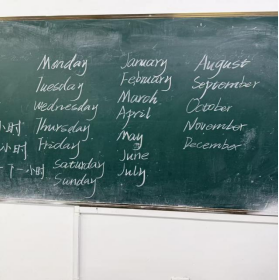 Monday January August
Tuesday February September
Wednesday March October
小时 Thursday April November
小时 Friday May December
小时 Saturday June
Sunday July